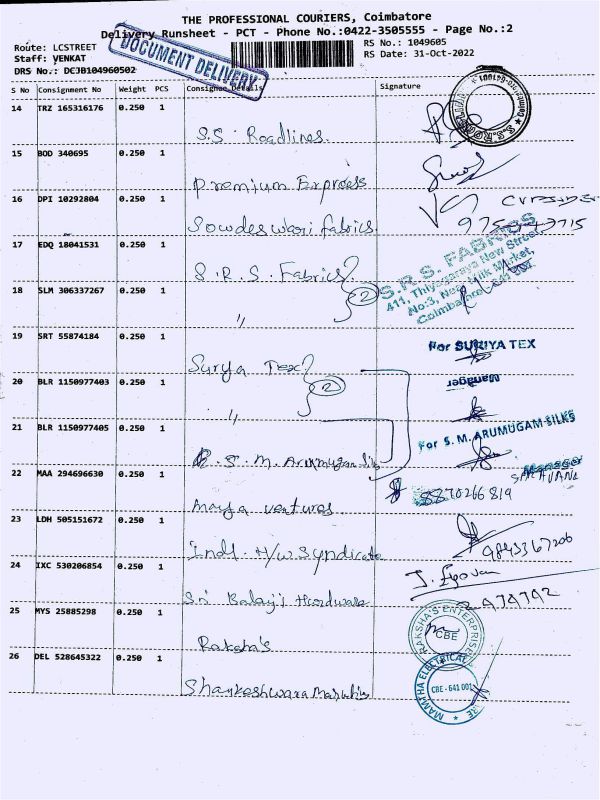 THE PROFESSIONAL COURIERS, Coimbatore
Delivery Runsheet - PCT - Phone No.:0422-3505555 - Page No.:2
Route: LCSTREET
RS No.: 1049605
Staff: VENKAT
RS Date: 31-Oct-2022
DRS No.: DCJB104960502
DOCUMENT DELIVERY
S No Consignment No Weight PCS Consignee Details Signature
14 TRZ 165316176 0.250 1
S.S. Roadlines.
15 BOD 340695 0.250 1
Premium Express
16 DPI 10292804 0.250 1
Sowdeswari fabrics.
17 EDQ 18041531 0.250 1
S.R.S. Fabrics } 2
S.R.S. FABRICS
411, Thiyagaraya New Street,
No:3, Near Milk Market,
Coimbatore - 641 001.
18 SLM 306337267 0.250 1
"
19 SRT 55874184 0.250 1
For SURIYA TEX
Surya Tex } 2
Manager
20 BLR 1150977403 0.250 1
"
21 BLR 1150977405 0.250 1
For S. M. ARUMUGAM SILKS
S. M. Arumugam Silks
Manager
22 MAA 294696630 0.250 1
SARAVANA
8870266819
Maya ventures
23 LDH 505151672 0.250 1
Indl. H/w Syndicate
9843367206
24 IXC 530206854 0.250 1
Sri Balaji Hardware
25 MYS 25885298 0.250 1
RAKSHA'S ENTERPRISES
CBE
Raksha's
26 DEL 528645322 0.250 1
CBE - 641 001
Shankeshwara